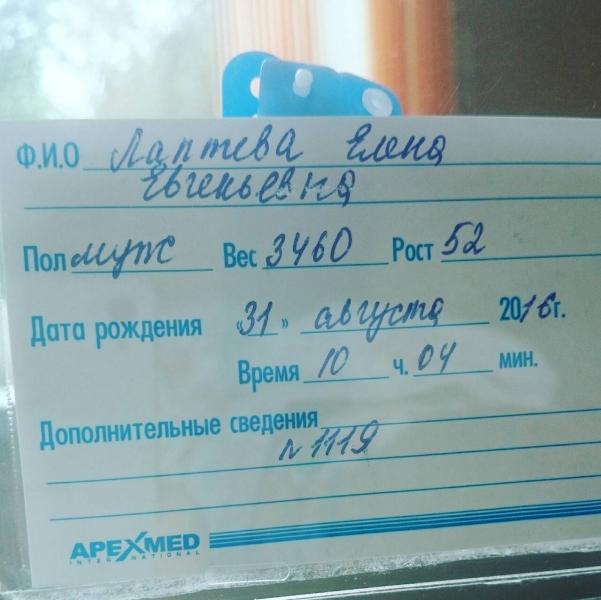 Ф.И.О Лаптева Елена
Евгеньевна
Пол муж Вес 3460 Рост 52
Дата рождения «31» августа 2016г.
Время 10 ч. 04 мин.
Дополнительные сведения
л 1119
APEXMED
INTERNATIONAL